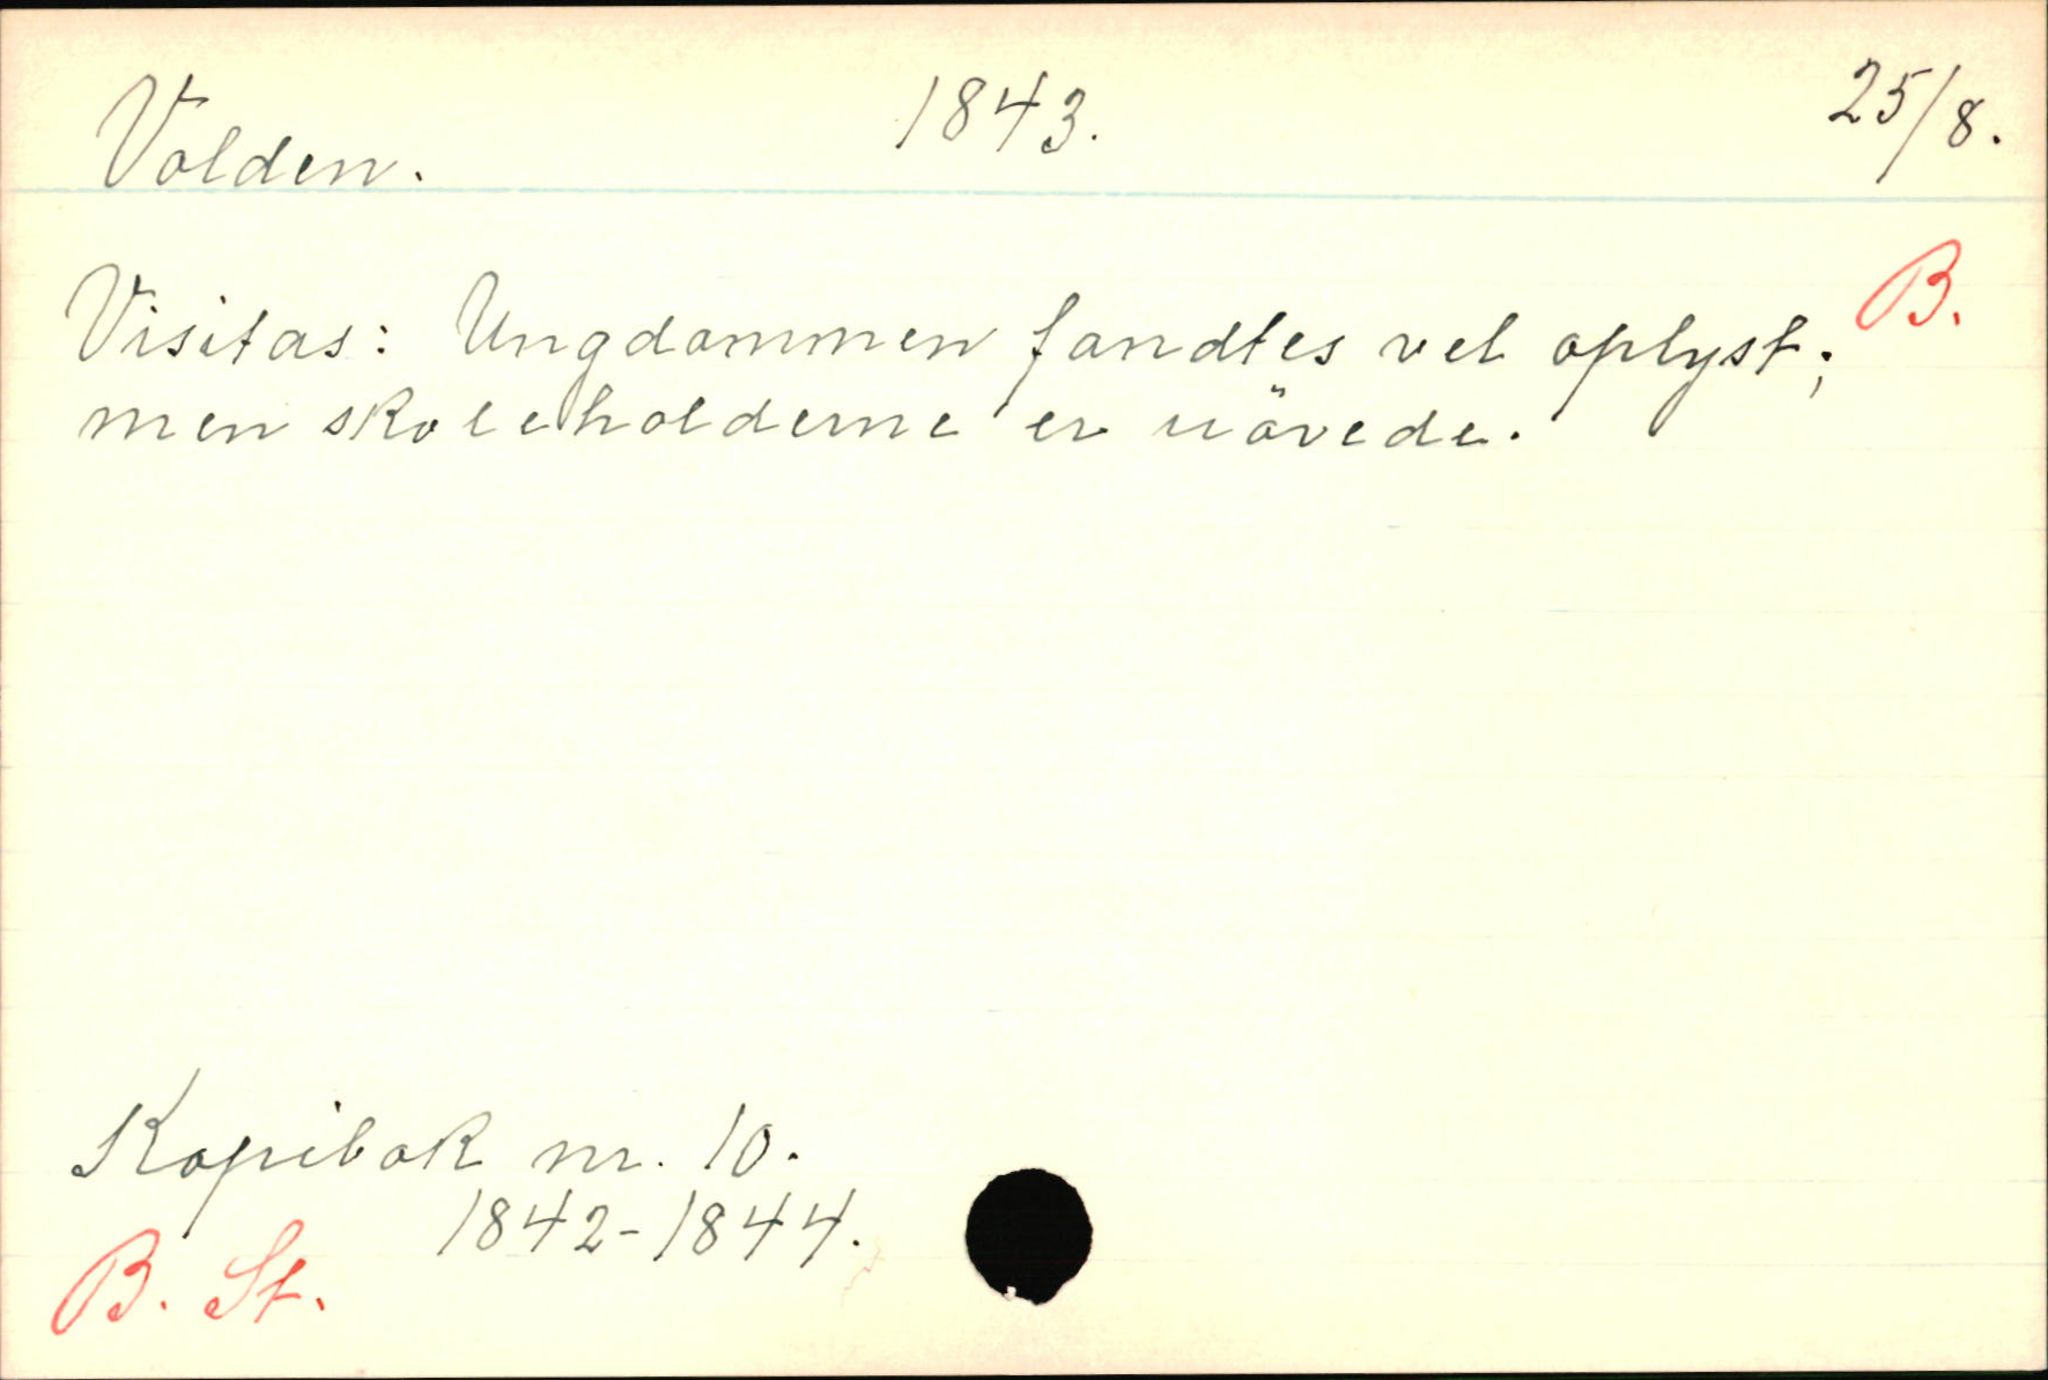 Volden. 1843. 25/8.
B.
Visitas: Ungdommen fandtes vel oplyst;
men skoleholderne er uövede.
Kopibok nr. 10.
1842-1844.
B. St.